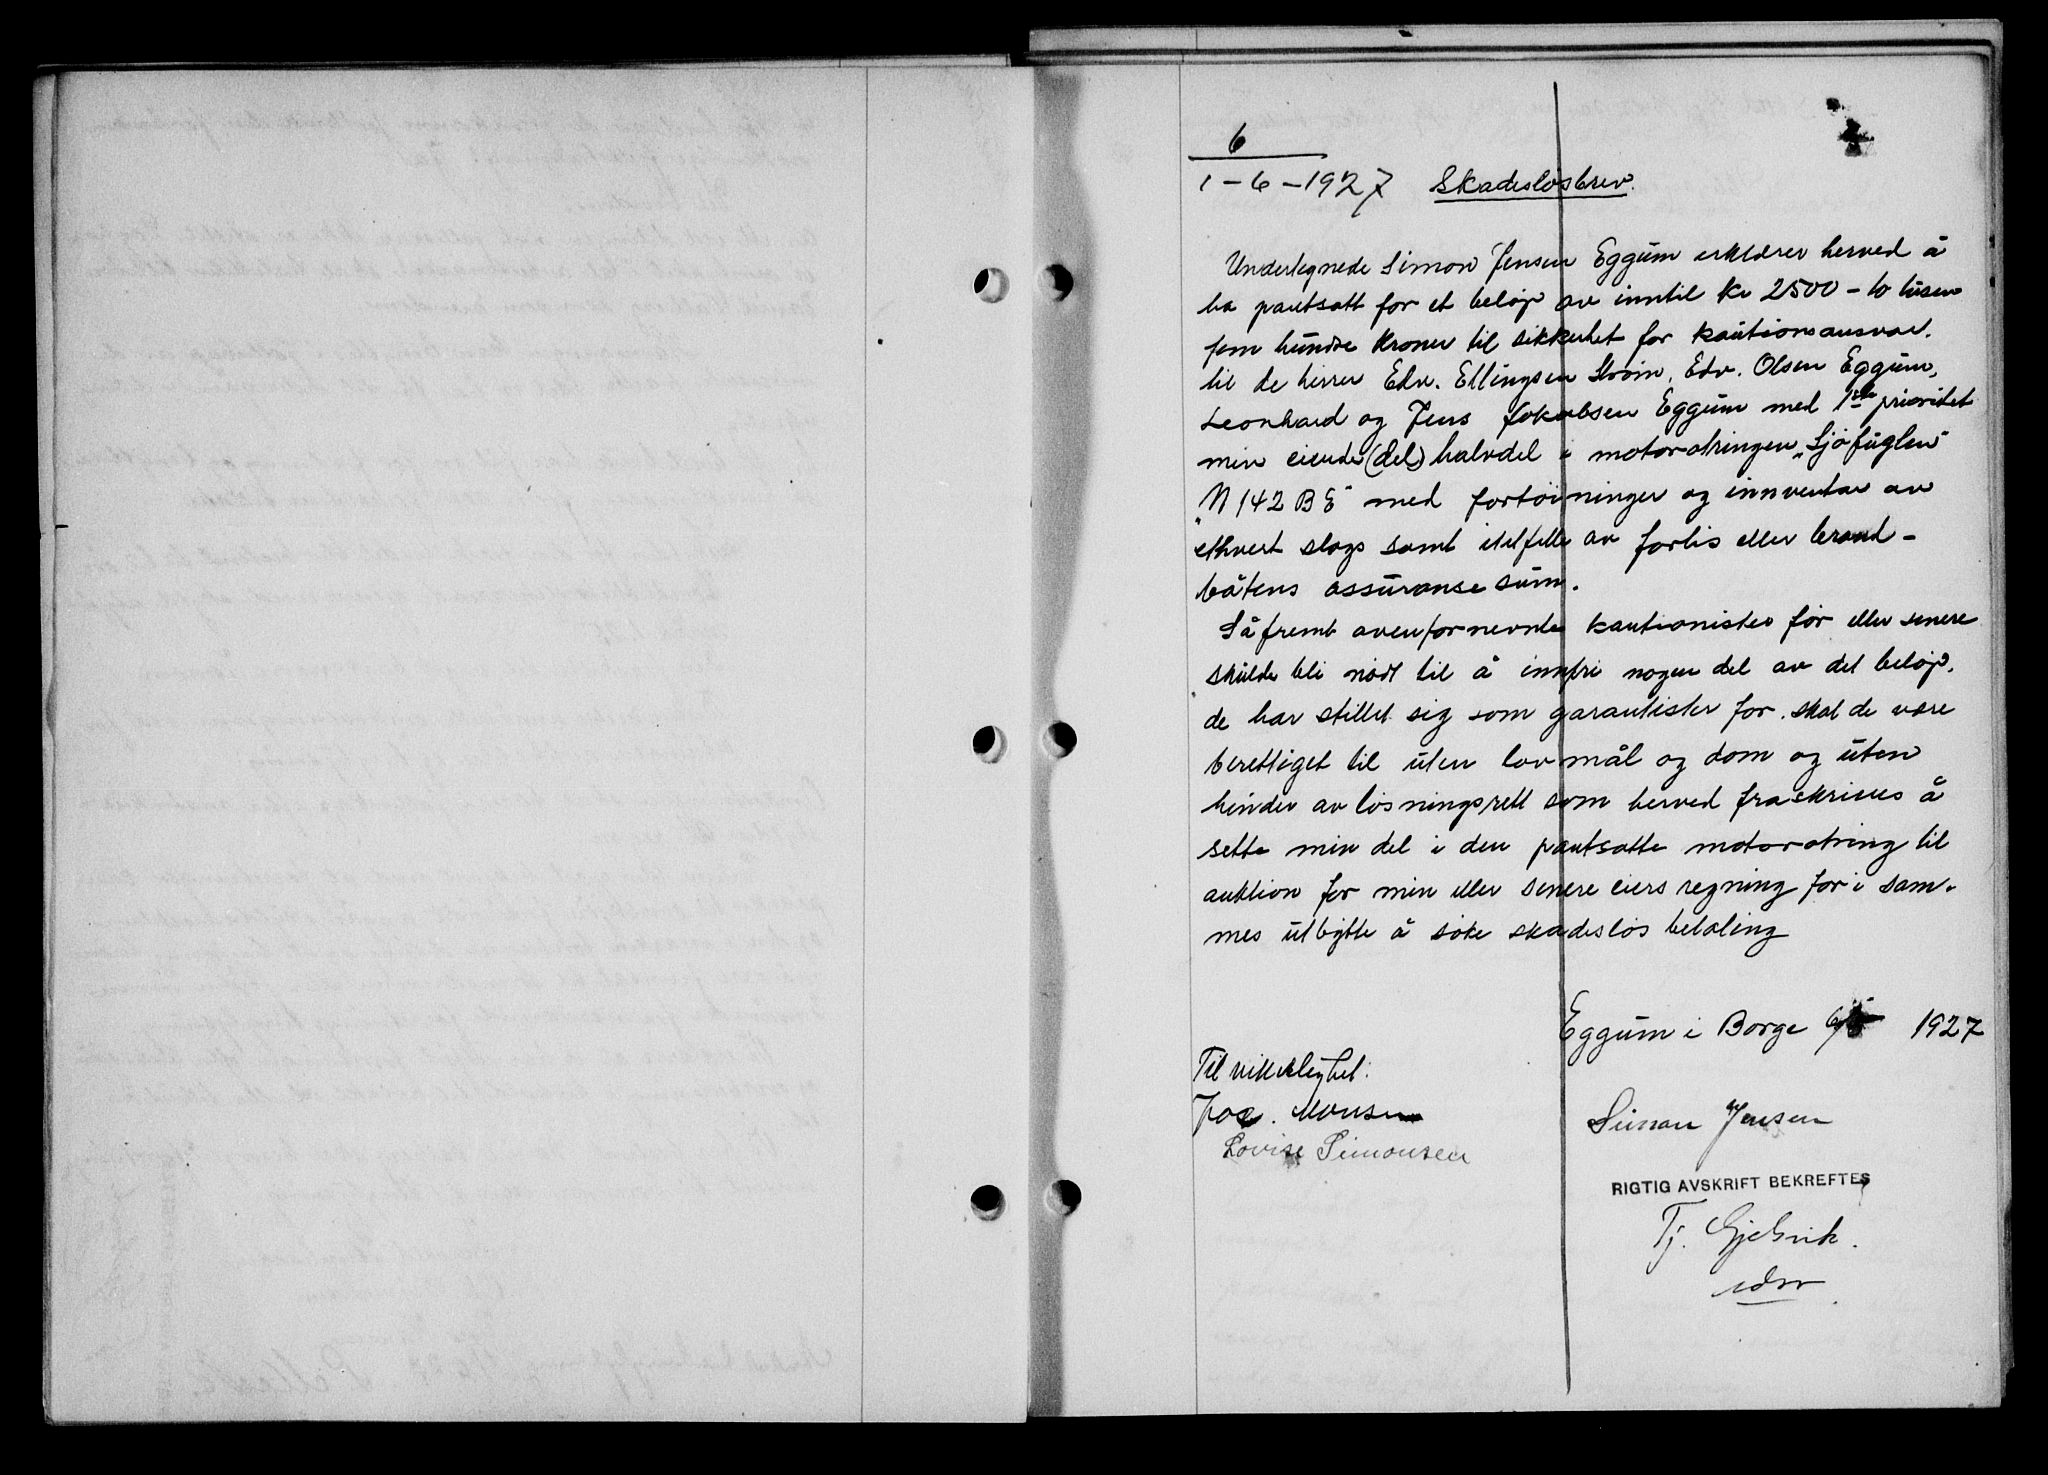 6
1-6-1927 Skadesløsbrev.
Undertegnede Simon Jensen Eggum erklærer herved å
ha pantsatt for et beløp av inntil kr 2500 - to tusen
fem hundre kroner til sikkerhet for kautionsansvar.
til de herrer Edv. Ellingsen Strøm, Edv. Olsen Eggum,
Leonhard og Jens Jakobsen Eggum med 1ste prioritet
min eiende (del) halvdel i motorotringen "Sjöfuglen"
"N 142 B E" med fortöininger og innventar av
ethvert slags samt i telfelle av forlis eller brand -
båtens assuranse sum.
Såfremt ovenfornevnte kautionister før eller senere
skulde bli nödt til å innfri nogen del av det beløp.
de har stillet sig som garantister for. skal de være
berettiget til uten lovmål og dom og uten
hinder av løsningsrett som herved fraskrives å
sette min del i den pantsatte motorotring til
auktion for min eller senere eiers regning for i sam-
mes utbytte å søke skadesløs betaling
Eggum i Borge 1927
Til vitterlighet:
Monsen
Simon Jensen
Lovise Simonsen
RIGTIG AVSKRIFT BEKREFTES
Tj. Gjelvik.